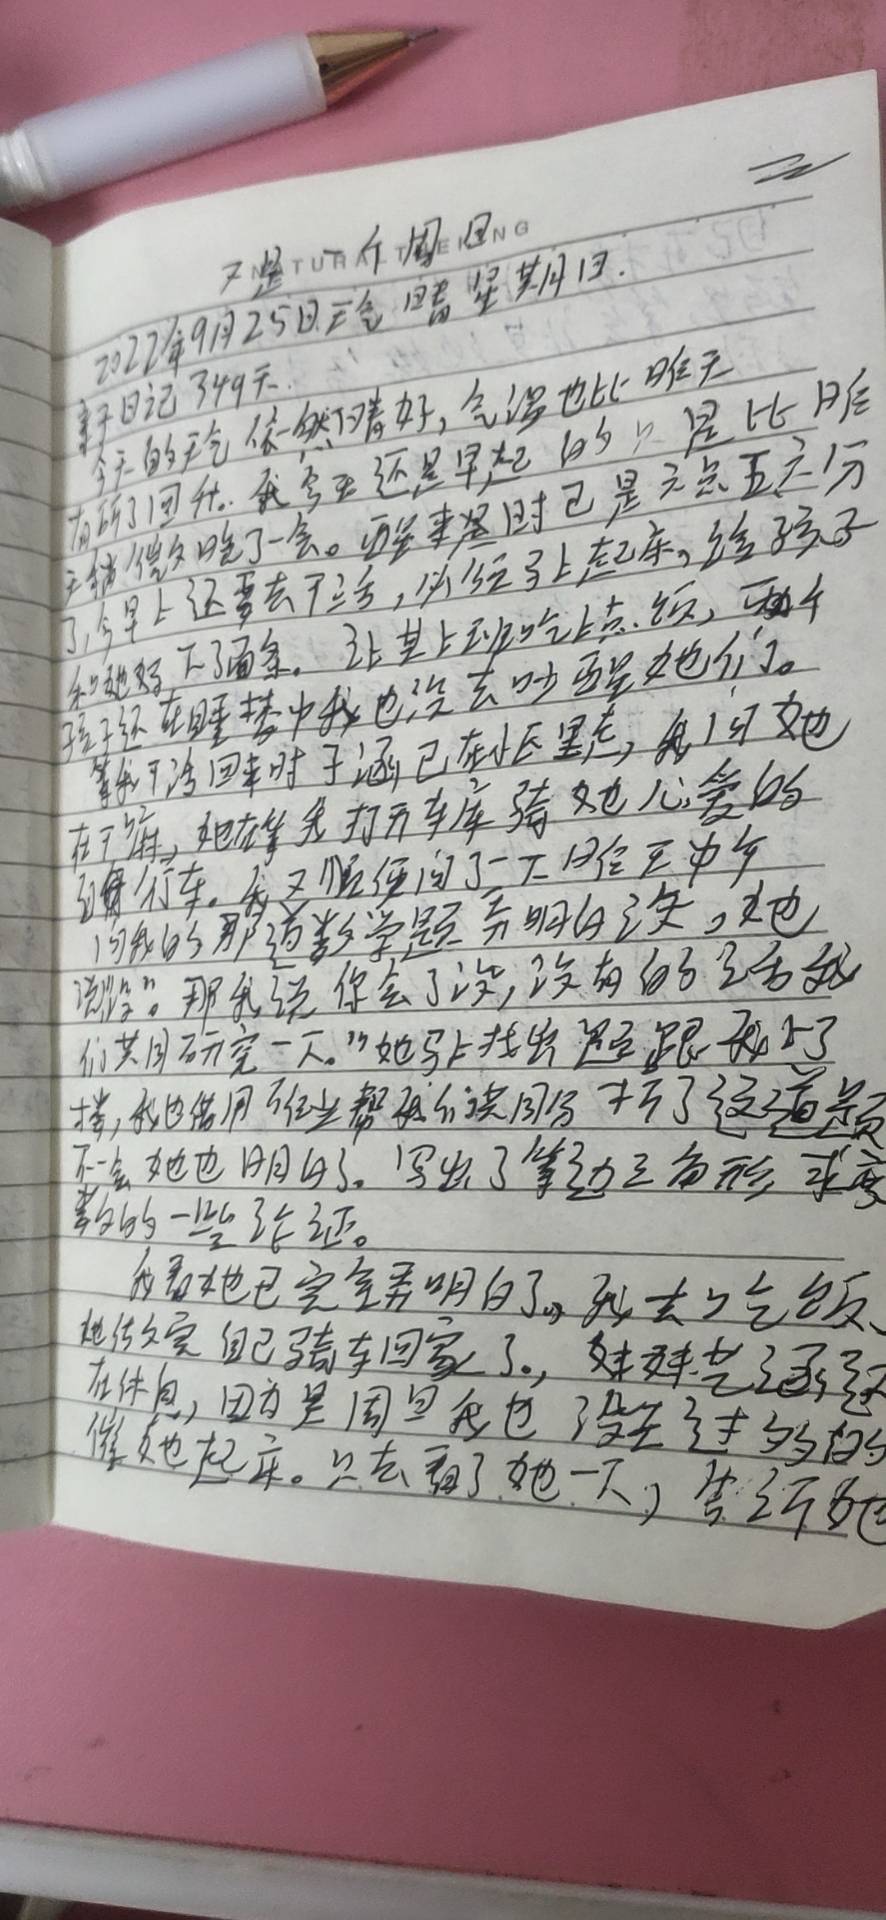 又是一个周日
2022年9月25日天气晴星期日.
亲子日记349天.
今天的天气依然晴好,气温也比昨天
有所了回升。我今天还是早起的只是比昨
天稍微晚了一会。醒来是时已是六点五六分
了,今早上还要去干活,从马上起床,给孩子
和她妈下了面条。让其上班吃上点饭,两个
孩子还在睡梦中我也没去吵醒她们了。
等我干活回来时子涵已在小区里走,我问她
在干啥,她在等我打开车库骑她心爱的
自行车。我又顺便问了一下昨天中午
问我的那道数学题弄明白没,她
说没"。那我说你会了没,没有的话我
们共同研究一下。"她马上找出题跟我上了
楼,我也借用帮我们共同分析了这道题
不一会她也明白了。写出了等边三角形求度
数的一些论证。
我看她已完全弄明白了。我去吃饭、
她依然自己骑车回家了。,妹妹艺涵还
在休息,因为是周日我也没去过多的
催她起床。只去看了她一下,告诉她